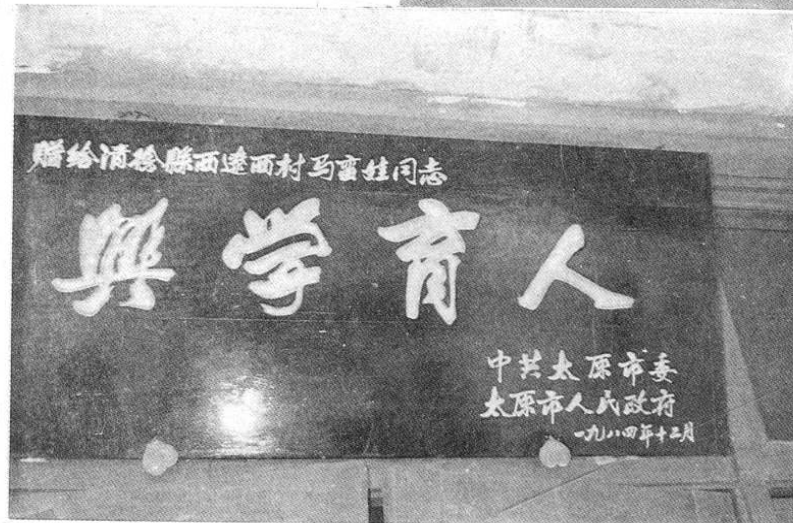 赠给清徐縣西遼西村马蛮娃同志
興学育人
中共太原市委
太原市人民政府
一九八四年十二月